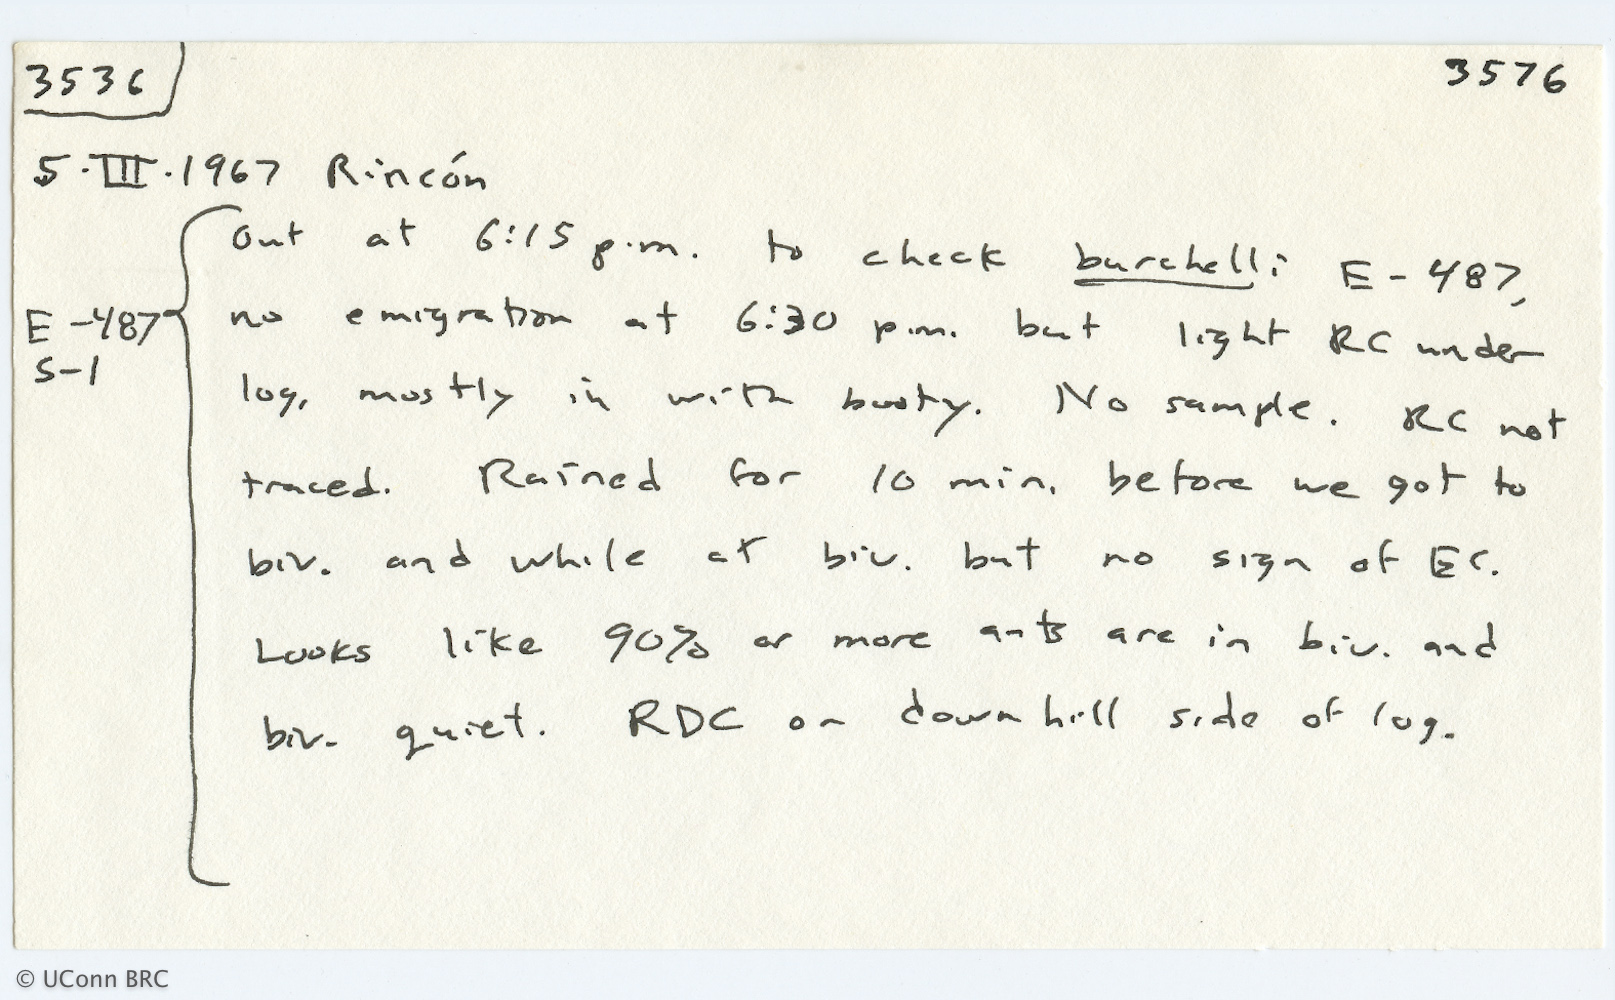 3536
3576
5·III·1967 Rincón
Out at 6:15 p.m. to check burchelli E-487,
E-487
S-1
no emigration at 6:30 p.m. but light RC under
log, mostly in with booty. No sample. RC not
traced. Rained for 10 min. before we got to
biv. and while at biv. but no sign of EC.
Looks like 90% or more ants are in biv. and
biv. quiet. RDC on downhill side of log.
© UConn BRC